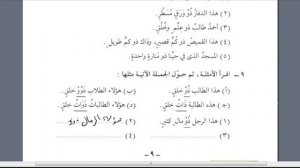 (٢) هذا الدفتر ذو ورق مسطر.
(٣) أحمد طالب ذو علم وخلق.
(٤) هذا القميص ذو كم قصير، وذاك ذو كم طويل.
(٥) المسجد الذي في حينا ذو منارة واحدة.
٩ – اقرأ الأمثلة، ثم حول الجملة الآتية مثلها:
(أ) هذا الطالب ذو خلق. (ب) هؤلاء الطلاب ذوو خلق.
(ج) هذه الطالبة ذات خلق. (د) هؤلاء الطالبات ذوات خلق.
(١) هذا الرجل ذو مال كثير. (٢) الرجال
(٣) (٤)
– ٩ –